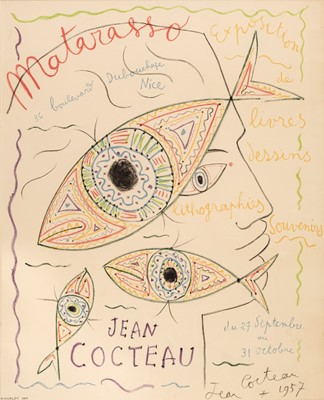 Matarasso
Exposition
de
livres
dessins
lithographies
Souvenirs
36 boulevard
Dubouchage
Nice
JEAN
COCTEAU
du 27 Septembre
au
31 octobre
Jean Cocteau
1957